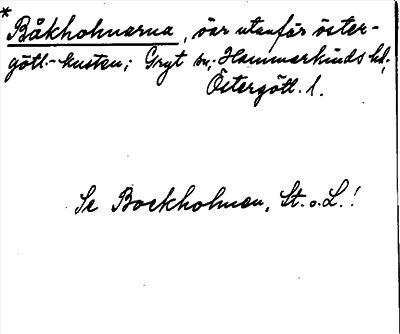 * Båkholmarna, öar utanför öster-
götl.-kusten; Gryt sn; Hammarkinds hd,
Östergötl. l.
Se Bockholmen, St. o. L.!